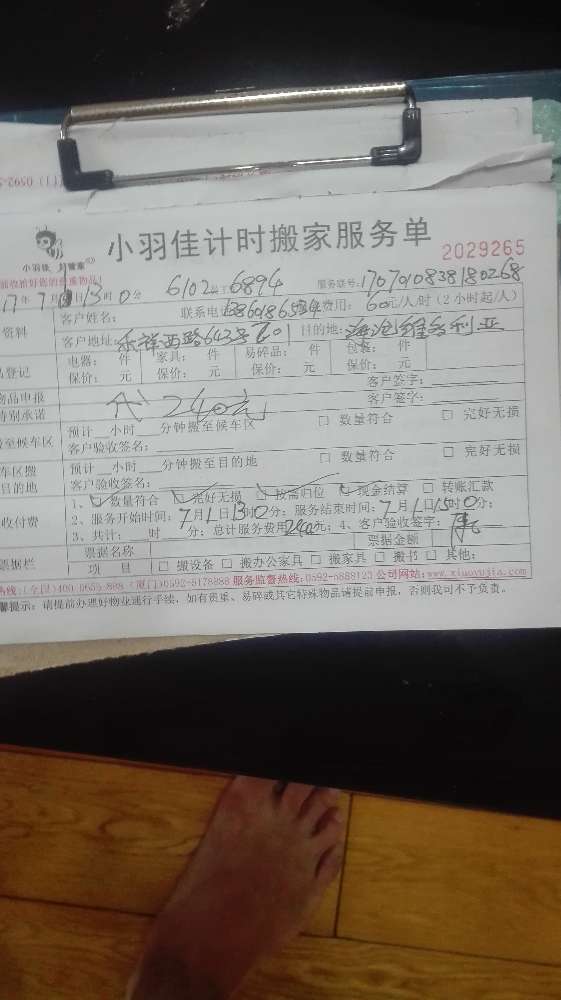 小羽佳计时搬家服务单
小羽佳 好管家
2029265
前收拾好您的贵重物品！
17年7月1日13时0分 6102 6894 服务联号：170701083818026B
资料 客户姓名： 联系电话 费用：60元/人/时（2小时起/人）
客户地址： 西路643号 目的地：海沧维多利亚
登记 电器： 件 家具： 件 易碎品： 件 包装： 件
保价： 元 保价： 元 保价： 元 保价： 元
物品申报 客户签字：
特别承诺 240元 客户签字：
搬至候车区 预计 小时 分钟搬至候车区 □ 数量符合 □ 完好无损
客户验收签名：
车区搬 预计 小时 分钟搬至目的地 □ 数量符合 □ 完好无损
目的地 客户验收签名：
收付费 1、□ 数量符合 □ 完好无损 □ 按需归位 □ 现金结算 □ 转账汇款
2、服务开始时间：7月1日13时0分；服务结束时间：7月1日15时0分；
3、共计： 时 分；总计服务费用240元；4、客户验收签字：
票据栏 票据名称 票据金额
项 目 □ 搬设备 □ 搬办公家具 □ 搬家具 □ 搬书 □ 其他：
热线：（全国）400-0655-888（厦门）0592-5178888 服务监督热线：0592-5889123 公司网站：www.xiaoyujia.com
温馨提示：请提前办理好物业进行手续，如有贵重、易碎或其它特殊物品请提前申报，否则我司不予负责。